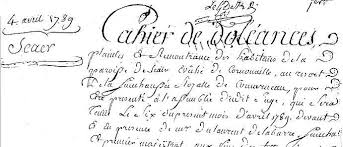 4 avril 1789
Scaer
Cahier de doléances
plaintes & Remontrances des habitans de la
paroisse de Scaer Evêché de Cornouaille, au ressort
De la Sénéchaussée Royalle de Concarneau, pour
être presenté à l'assemblée dudit siege, qui sera
tenue Le Six du present mois d'avril 1789. devant
& en presence de mr du laurent de labarre Senechal
& premier magistrat